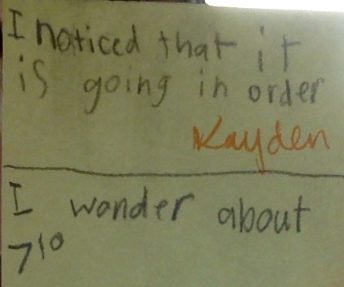 I noticed that it
is going in order
Kayden
I wonder about
7¹⁰